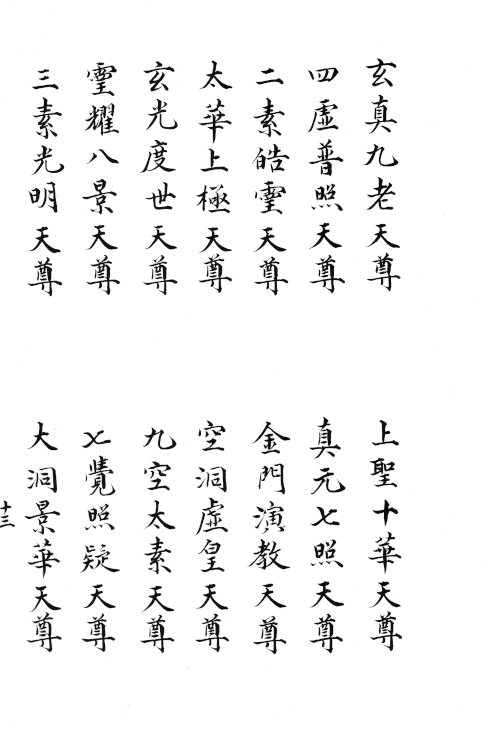 玄真九老天尊
上聖十華天尊
四虛普照天尊
真元七照天尊
二素皓霊天尊
金門演教天尊
太華上極天尊
空洞虛皇天尊
玄光度世天尊
九空太素天尊
霊耀八景天尊
七覺照疑天尊
三素光明天尊
大洞景華天尊
十三